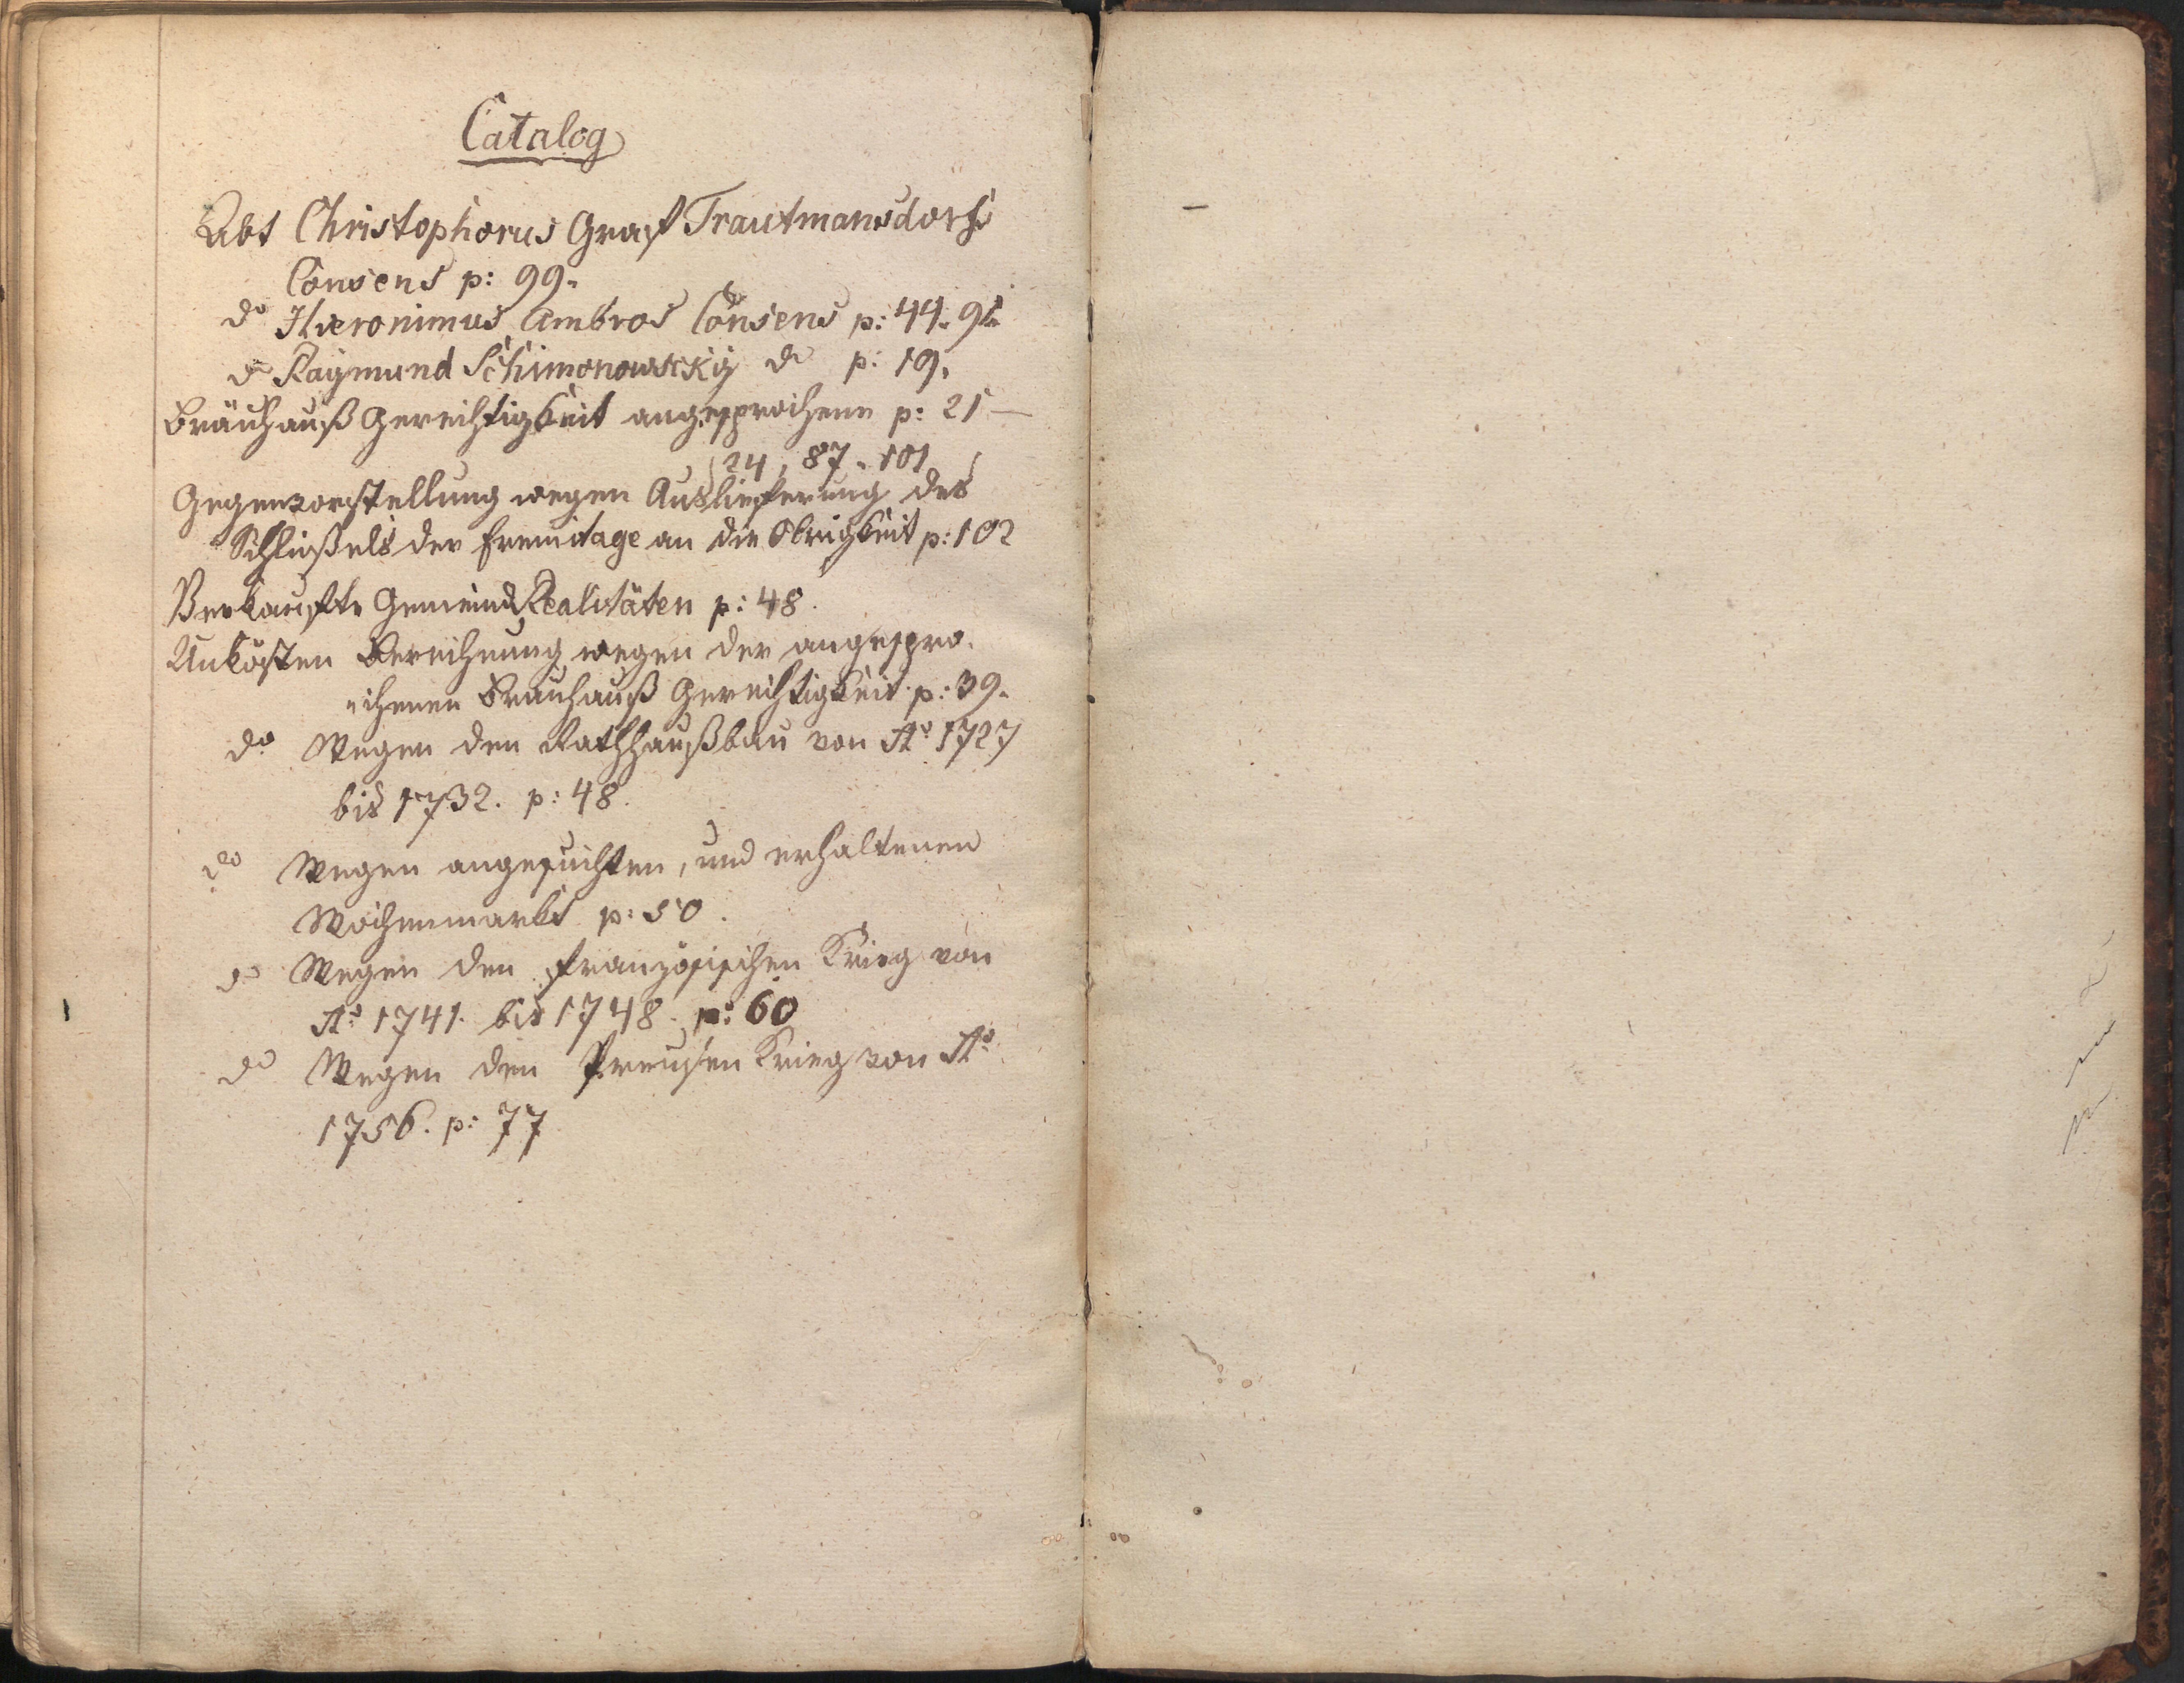 Catalog
Abt Christophorus Graf Trautmansdorfs
Consens p: 99.
do Hieronimus Ambros Consens p: 44. 91.
do Raymund Schimonowsky do p: 19.
Bräuhauß Gerechtigkeit angesprochene p: 21 —
24, 87. 101
Gegenvorstellung wegen Auslieferung des
Schlüßels der Eremitage an die Obrigkeit p: 102
Verkaufte Gemeind Realitäten p: 48.
Unkösten Berechnung wegen der angespro-
chenen Brauhauß Gerechtigkeit p: 39.
do Wegen den Rathhaußbau von Ao 1727
bis 1732. p: 48.
do Wegen angesuchten, und erhaltenen
Wochenmarkt p: 50.
do Wegen den französischen Krieg von
Ao 1741. bis 1748. p: 60
do Wegen den Preusen Krieg von Ao
1756. p: 77